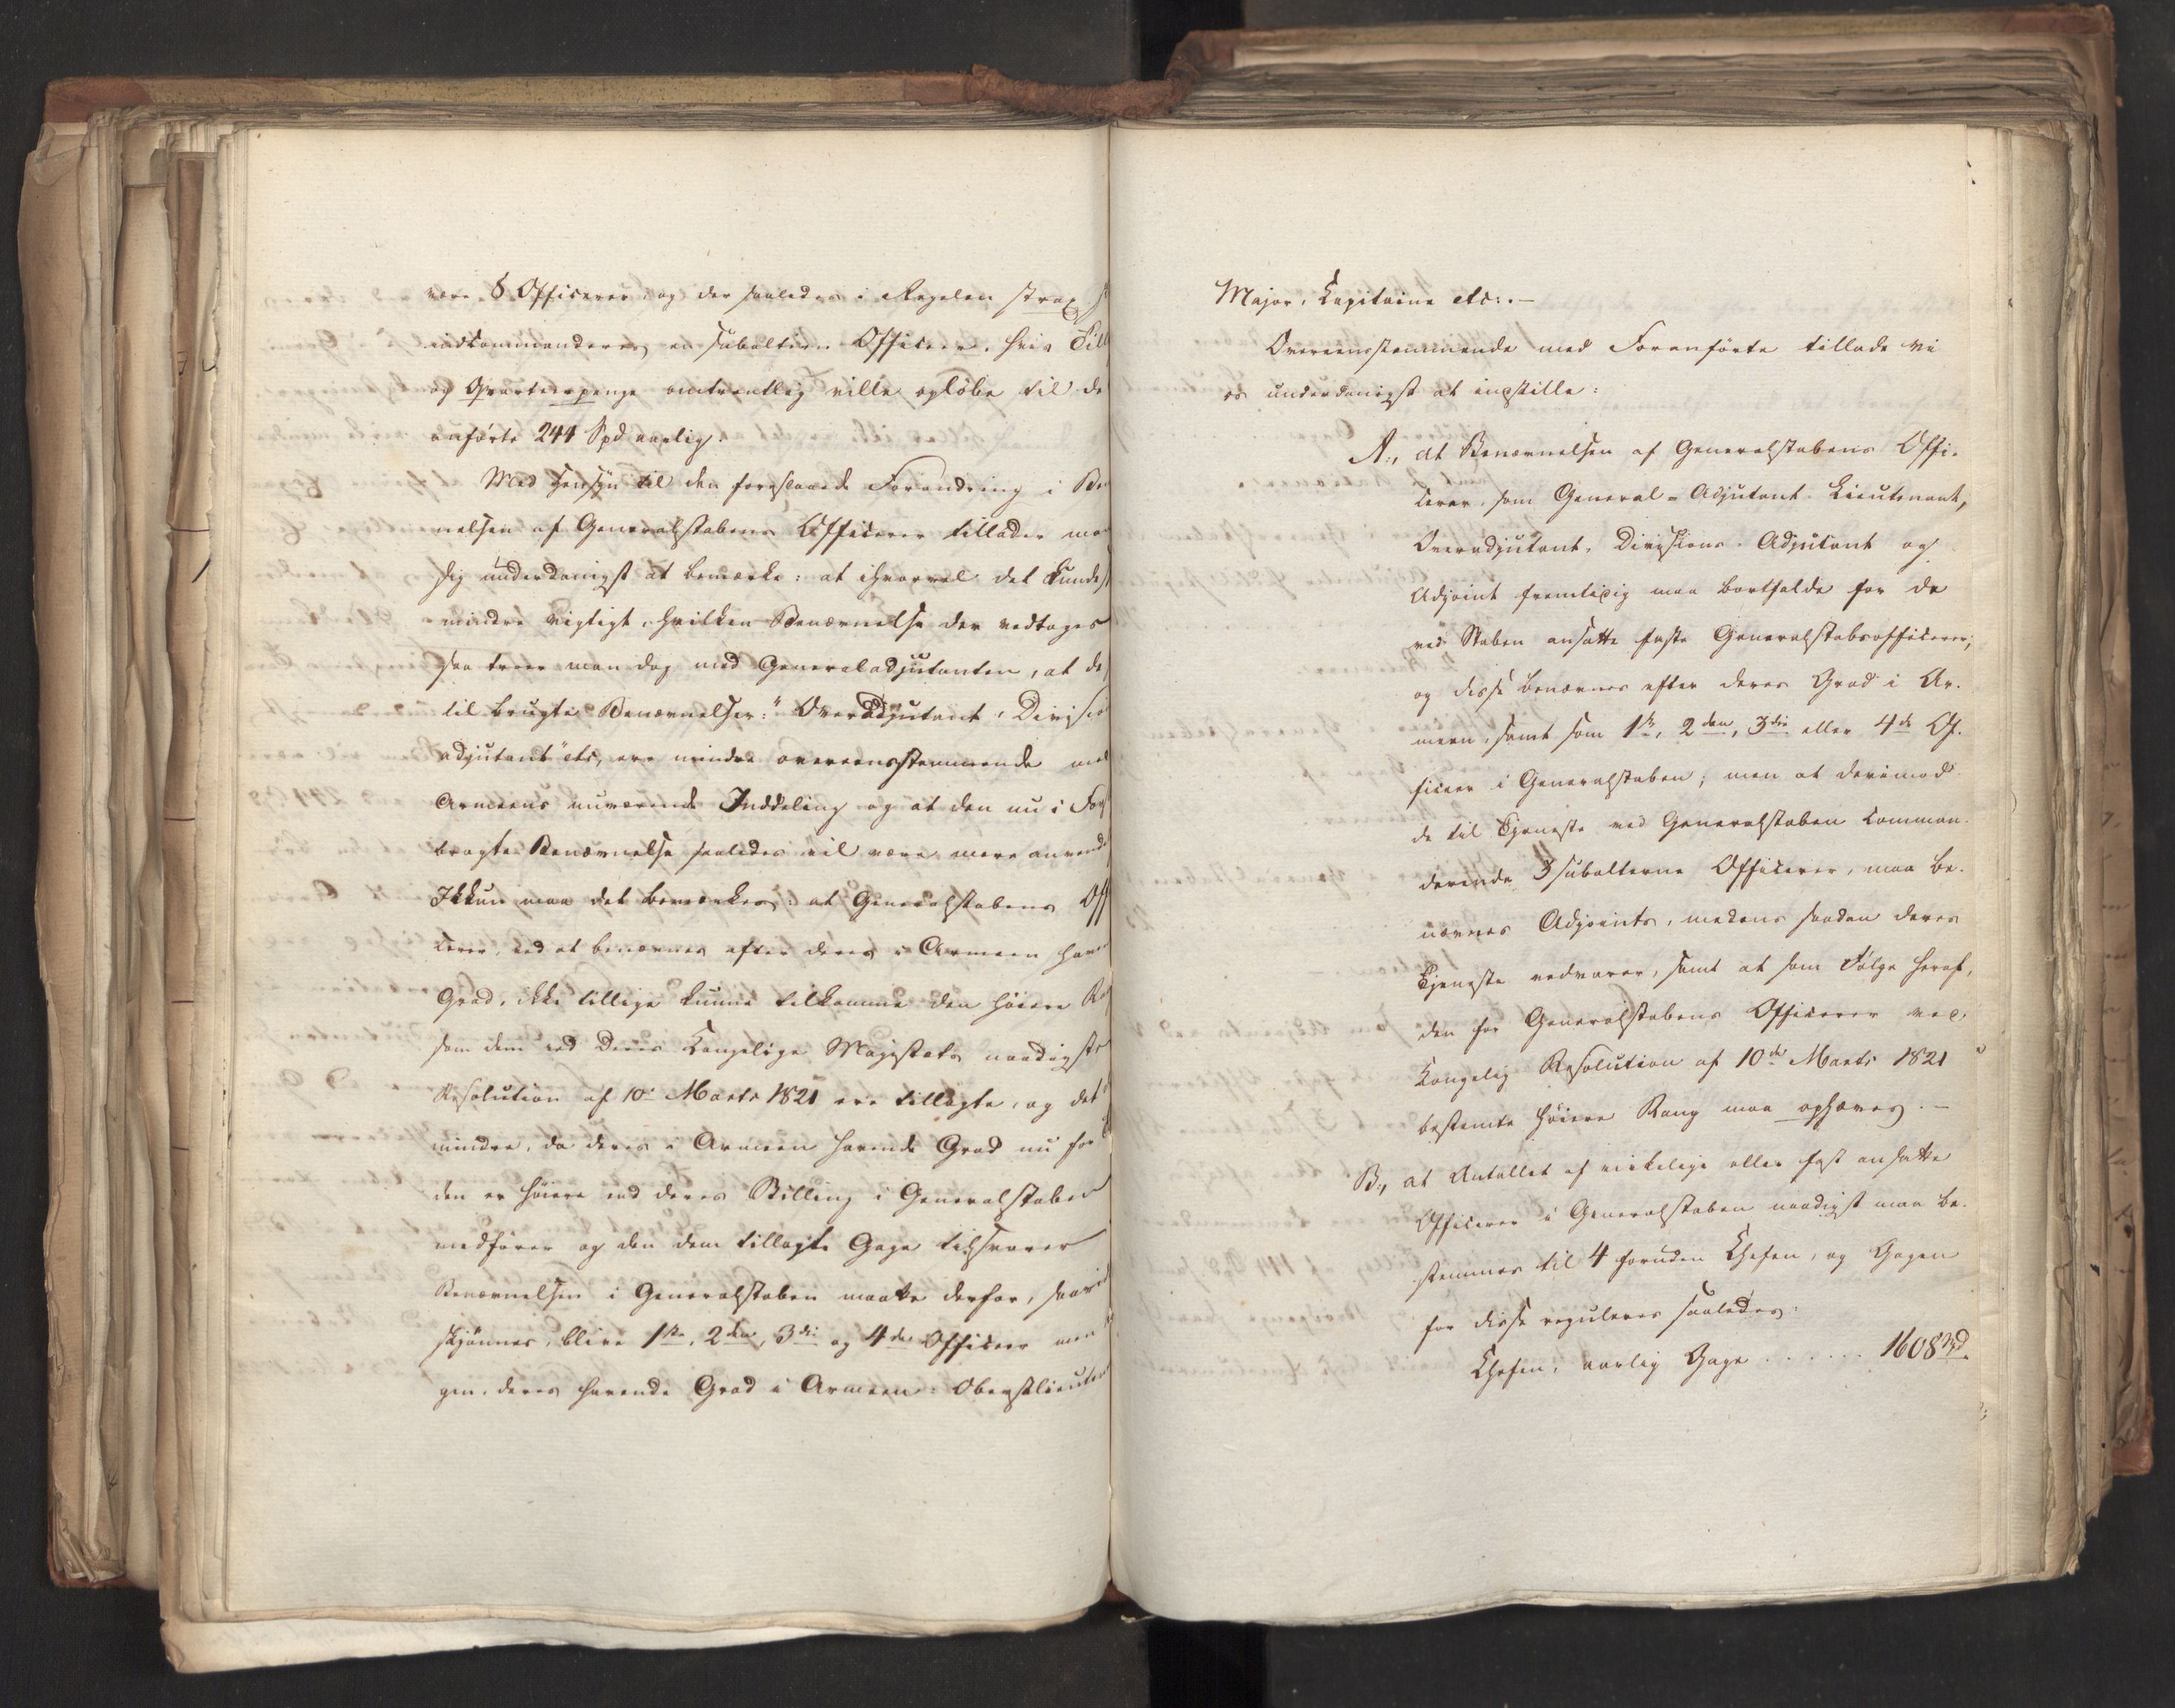 være 8 Officerer og der saaledes i Regelen strax
indkommanderes en subaltern Officeer, hvis Till
og Qvarteerpenge omtrentlig ville opløbe til de
anførte 244 Spd aarlig.
Med Hensyn til den foreslaaede Forandring i Be
nelsen af Generalstabens Officerer tillader man
sig underdanigst at bemærke: at ihvorvel det kunde
mindre vigtigt, hvilken Benævnelse der vedtages
saa troer man dog med Generaladjutanten, at de
til brugte Benævnelser: "Overadjutant, Divisions
adjutant" etc, ere mindre overeensstemmende med
Armeens nuværende Inddeling og at den nu i For
bragte Benævnelse saaledes vil være mere anvende
Ikkun maa det bemærkes: at Generalstabens Off
cerer, ved at benævnes efter deres i Armeen havende
Grad, ikke tillige kunne tilkomme den høiere Ra
som dem ved Deres Kongelige Majestæts naadigste
Resolution af 10de Marts 1821 ere tillagte, og det
mindre, da deres i Armeen havende Grad nu for
den er høiere end deres Stilling i Generalstaben
medfører og den dem tillagte Gage tilsvarer
Benævnelsen i Generalstaben maatte derfor, saavid
skjønnes, blive 1ste, 2den, 3die og 4de Officeer men
gen. deres havende Grad i Armeen: Oberstlieuten
Major, Kapitaine etc:.-
Overeensstemmende med Foranførte tillade vi
os underdanigst at indstille:
A., at Benævnelsen af Generalstabens Offi-
cerer, som General-Adjutant-Lieutenant,
Overadjutant, Divisions-Adjutant og
Adjoint fremtidig maa bortfalde for de
ved Staben ansatte faste Generalstabsofficerer;
og disse benævnes efter deres Grad i Ar-
meen, samt som 1ste, 2den, 3die eller 4de Of-
ficeer i Generalstaben; men at derimod
de til Tjeneste ved Generalstaben komman-
derende 3 subalterne Officerer, maa be-
nævnes Adjoints, medens saadan deres
Tjeneste vedvarer, samt at som Følge heraf,
den for Generalstabens Officerer ved
Kongelig Resolution af 10de Marts 1821
bestemte høiere Rang maa ophæves.-
B., at Antallet af virkelige eller fast ansatte
Officerer i Generalstaben naadigst maa be-
stemmes til 4 foruden Chefen, og Gagen
for disse reguleres saaledes:
Chefen, aarlig Gage . . . . . . 1608 Spd.